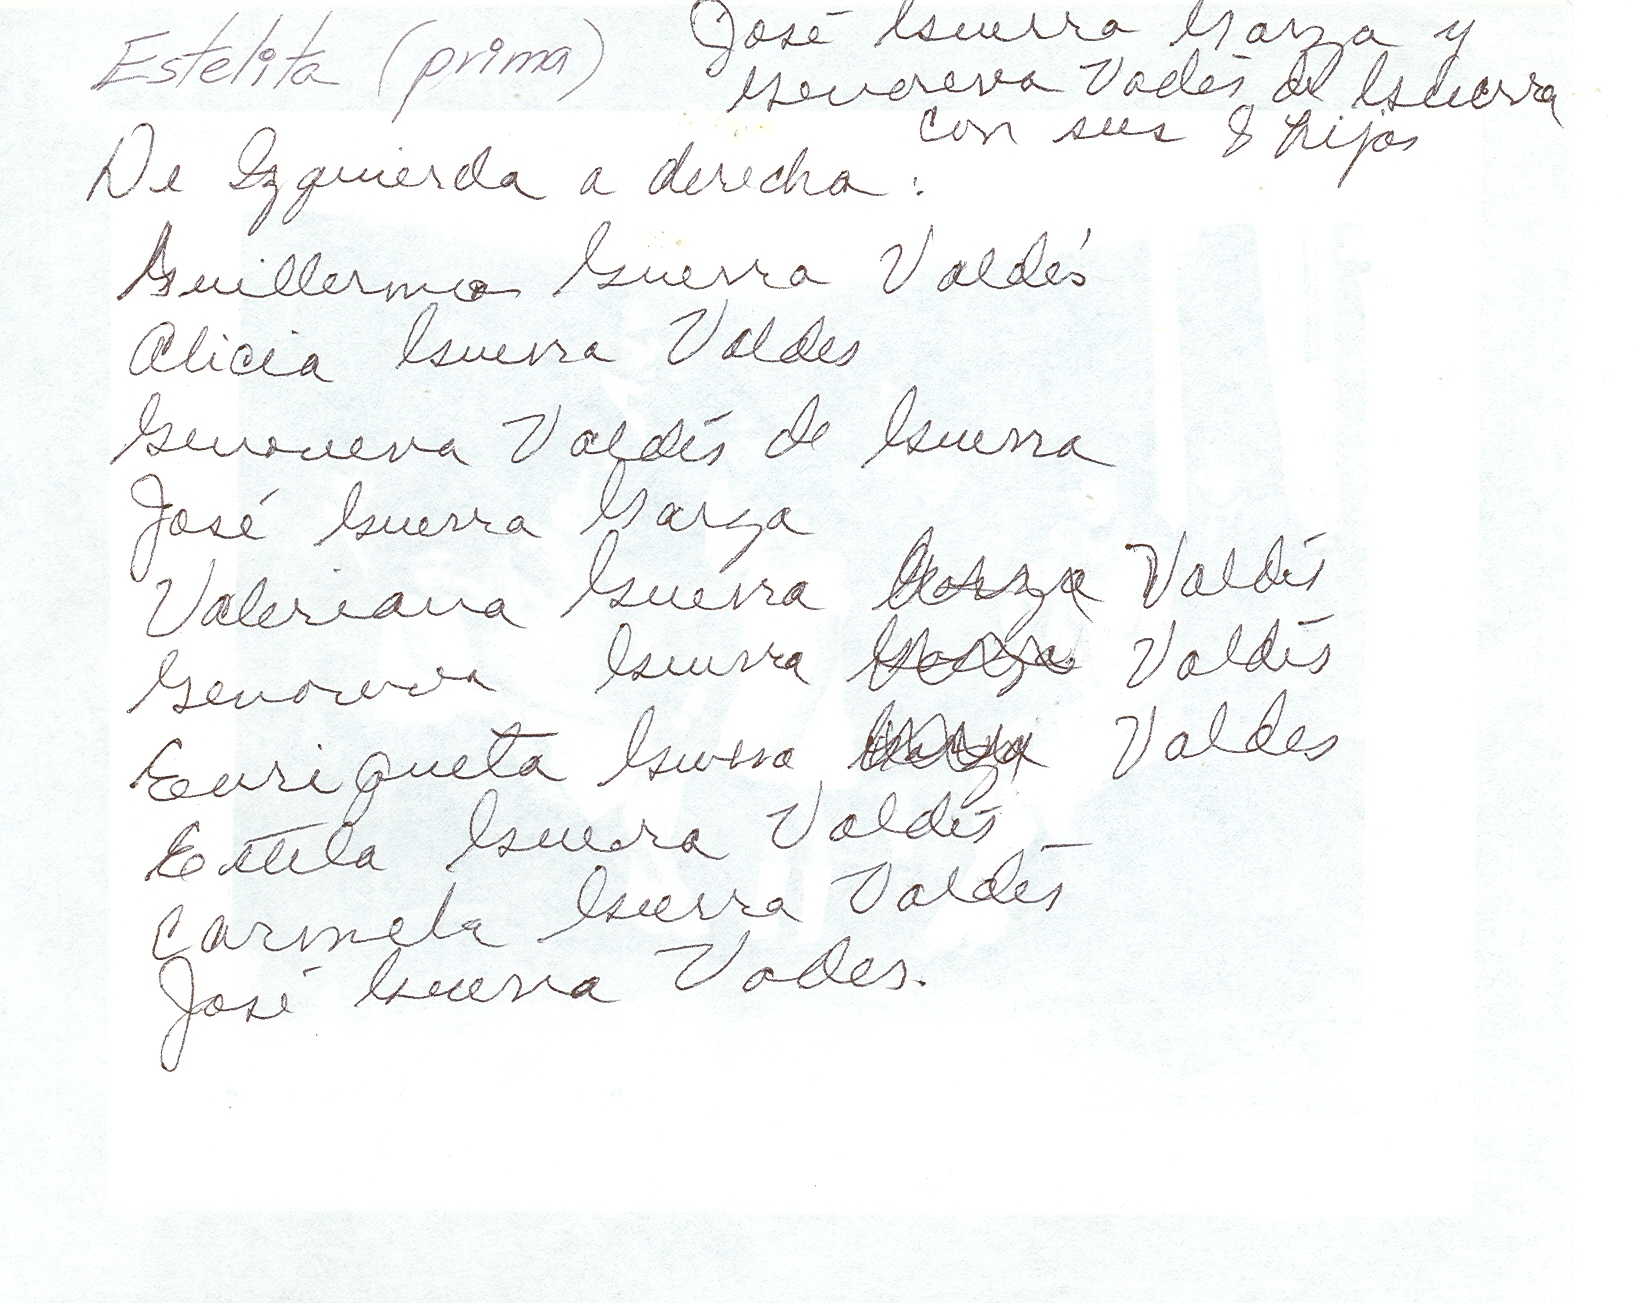 Estelita (prima)
José Guerra Garza y
Genoveva Vadés de Guerra
con sus 8 hijos
De Izquierda a derecha:
Guillermo Guerra Valdés
Alicia Guerra Valdes
Genoveva Valdés de Guerra
José Guerra Garza
Valeriana Guerra Garza Valdés
Genoveva Guerra Garza Valdés
Enriqueta Guerra Valdes
Estela Guerra Valdés
Carmela Guerra Valdés
José Guerra Vades.